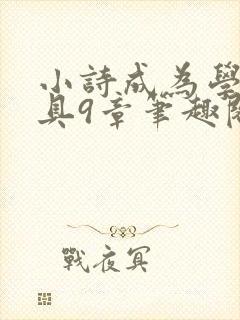 小詩成為學
具9章筆趣閣
戰夜冥